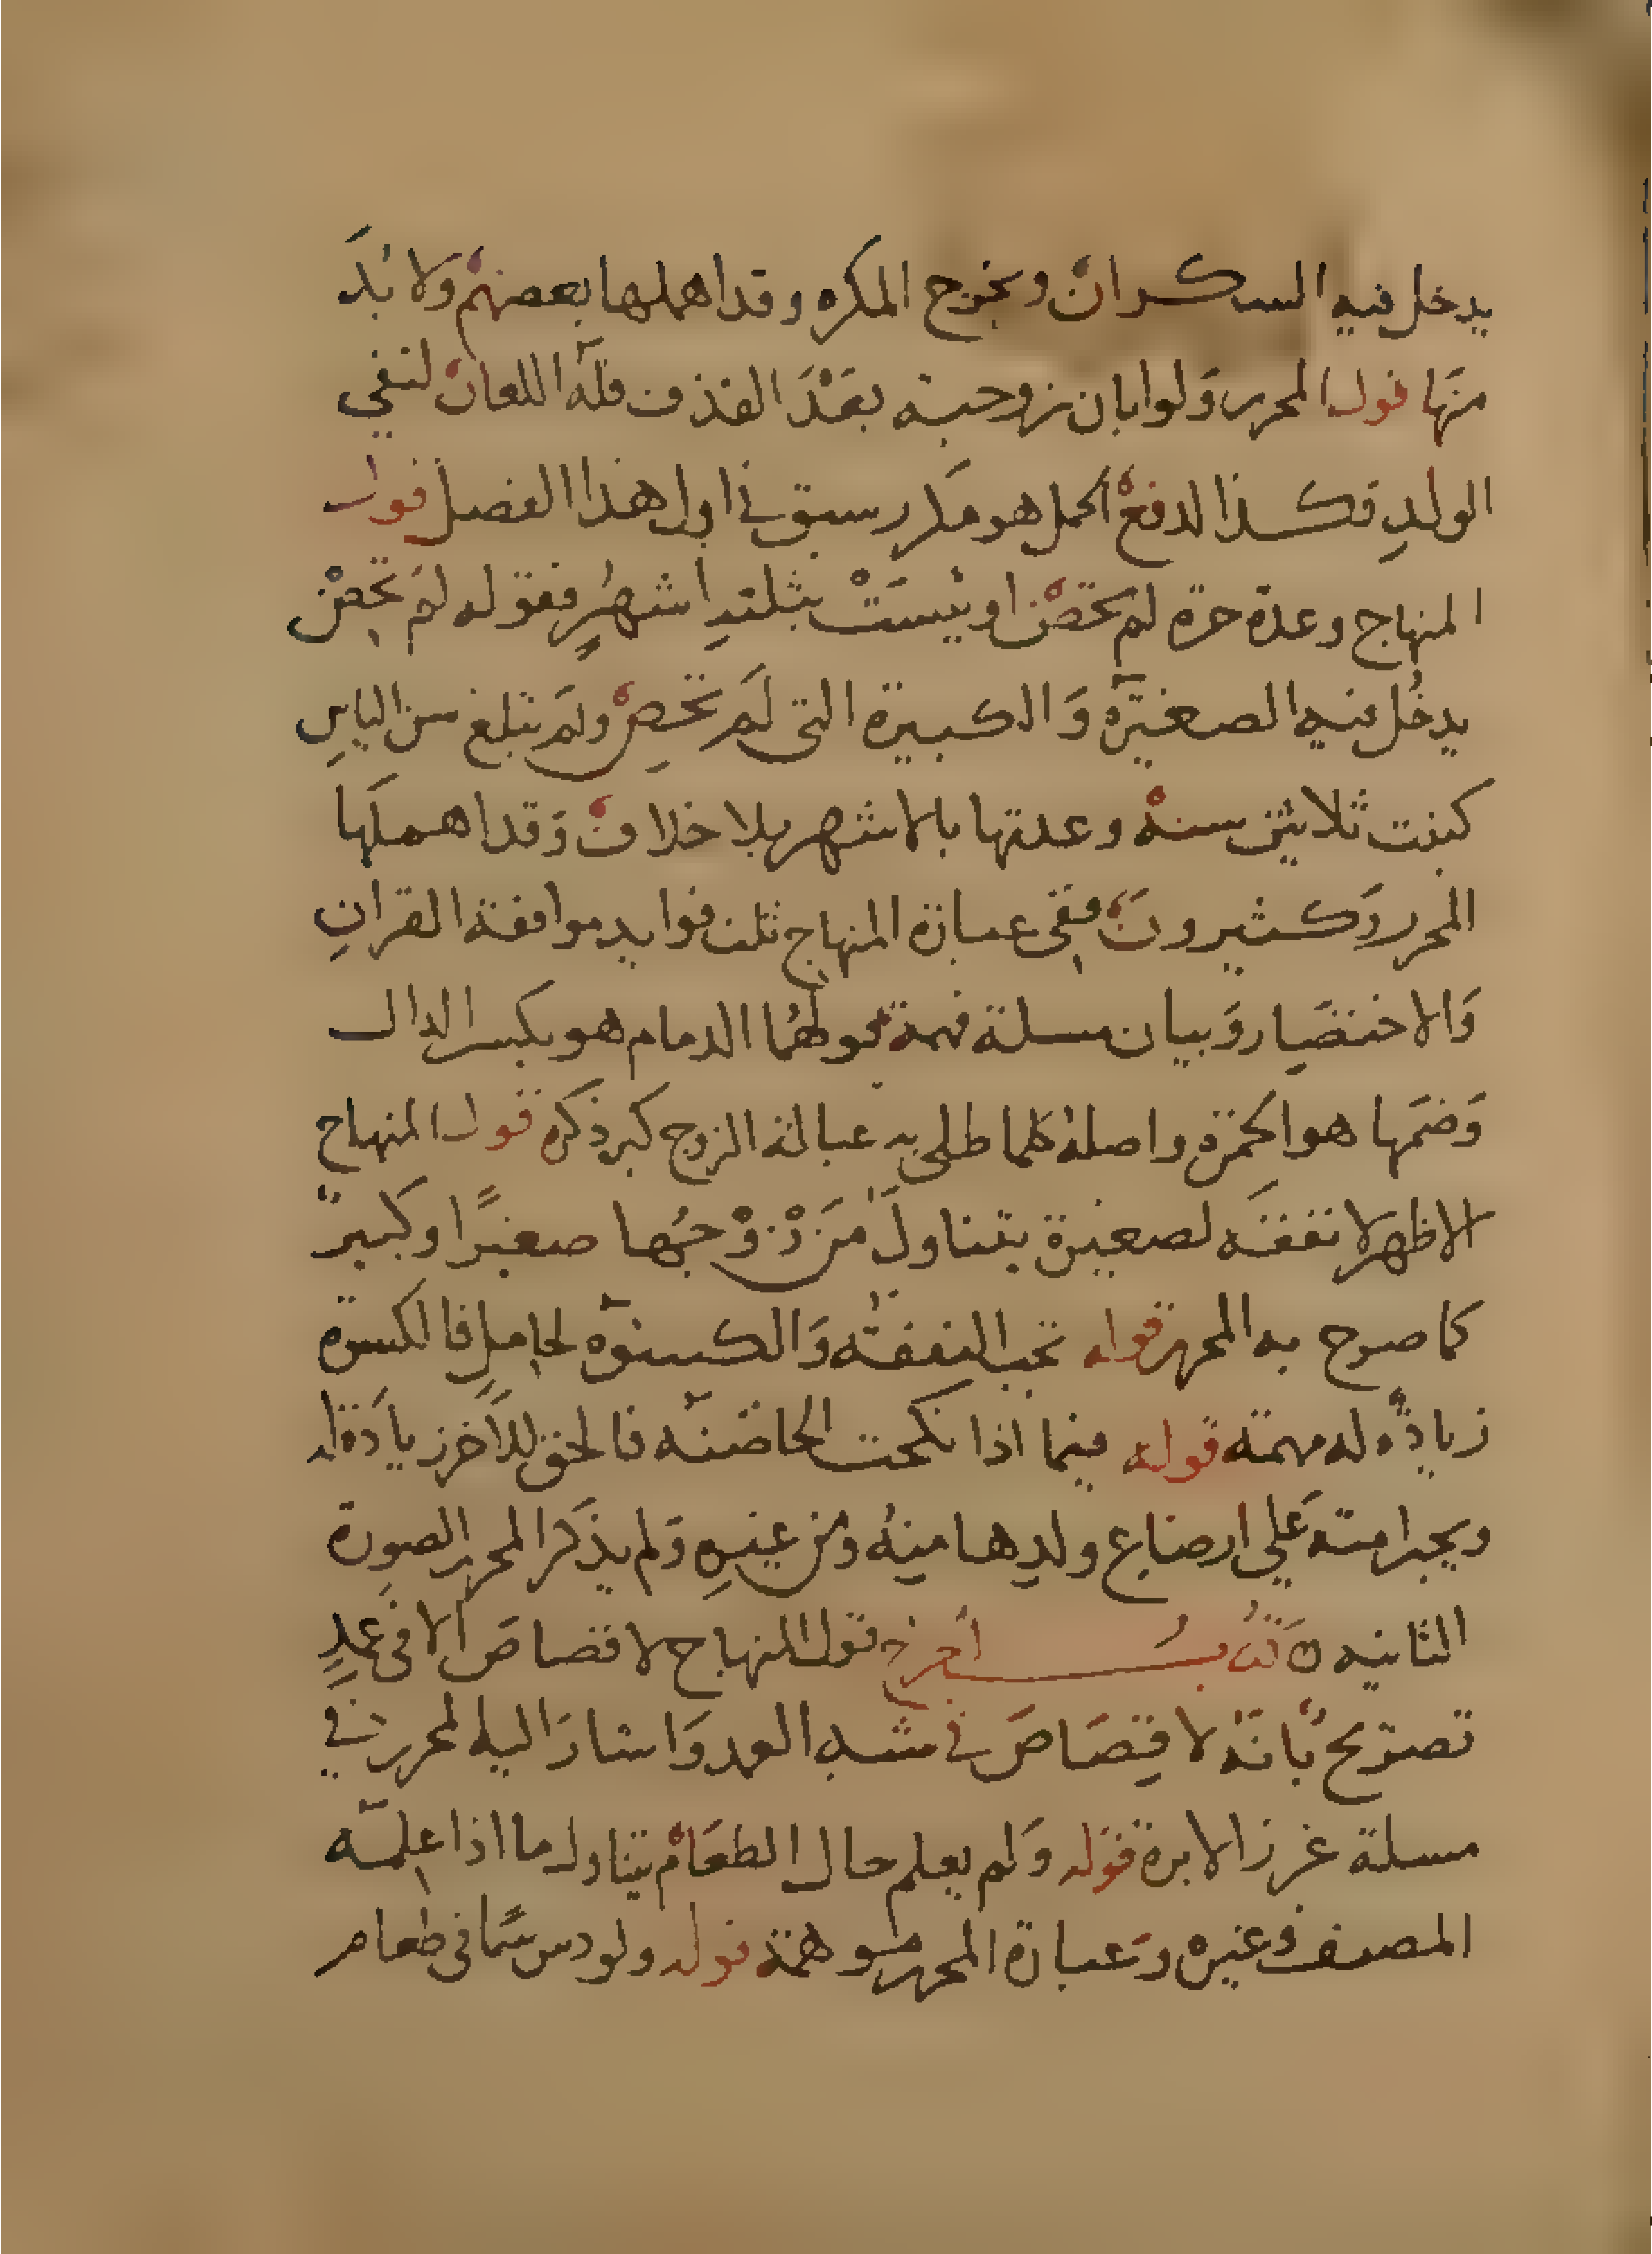 يدخل فيه السكران ويخرج المكره وقد اهملها بعضهم ولا بُدَّ
منها قول المحرر ولو ابان زوجته بعد القذف فله اللعان لنفي
الولدِ فكذا لدفع الحمل هو مكرر سبق في اول هذا الفصل قول
المنهاج وعدة حرة لم تحض او يئست بثلثة اشهرٍ فقوله لم تحض
يدخُل فيه الصغيرة وَالكبيرة التي لم تحض ولم تبلغ سن الياس
كبنت ثلاثين سنة وعدتها بالاشهر بلا خلاف وقد اهملها
المحرر وكثيرون ففي عبارة المنهاج ثلث فوايد موافقة القران
وَالاختصَار وَبيان مسلة مهمة قولهُما الدمام هو بكسر الدال
وَضمّها هو الحمرة واصله كلما طلي به عبالة الزوج كبر ذكره قول المنهاج
الاظهر لا نفقَه لصغيرة يتناول من زوجُها صغيرًا وكبير
كما صرح به المحرر قوله تجب النفقة وَالكسوة لحامِل فالكسوة
زيادة له مهمة قوله فيما اذا نكحت الحاضنة فالحق للاخر زيادة له
ويجبر امته علي ارضاع ولدِها منه ومن غيره وَلم يذكر المحرر الصورة
الثانيه ن كتاب الجراح قول المنهاج لا قصاص الا في عمدٍ
تصريح بأنه لا قِصَاصَ في شبه العمد وَاشارَ اليه لمحرر في
مسلة غرز الابرة قوله وَلم يعلم حال الطعَام يتناول ما اذا علمه
المصنف وغيره وَعبارة المحرر موهمة قوله ولو دس سمًا في طعام